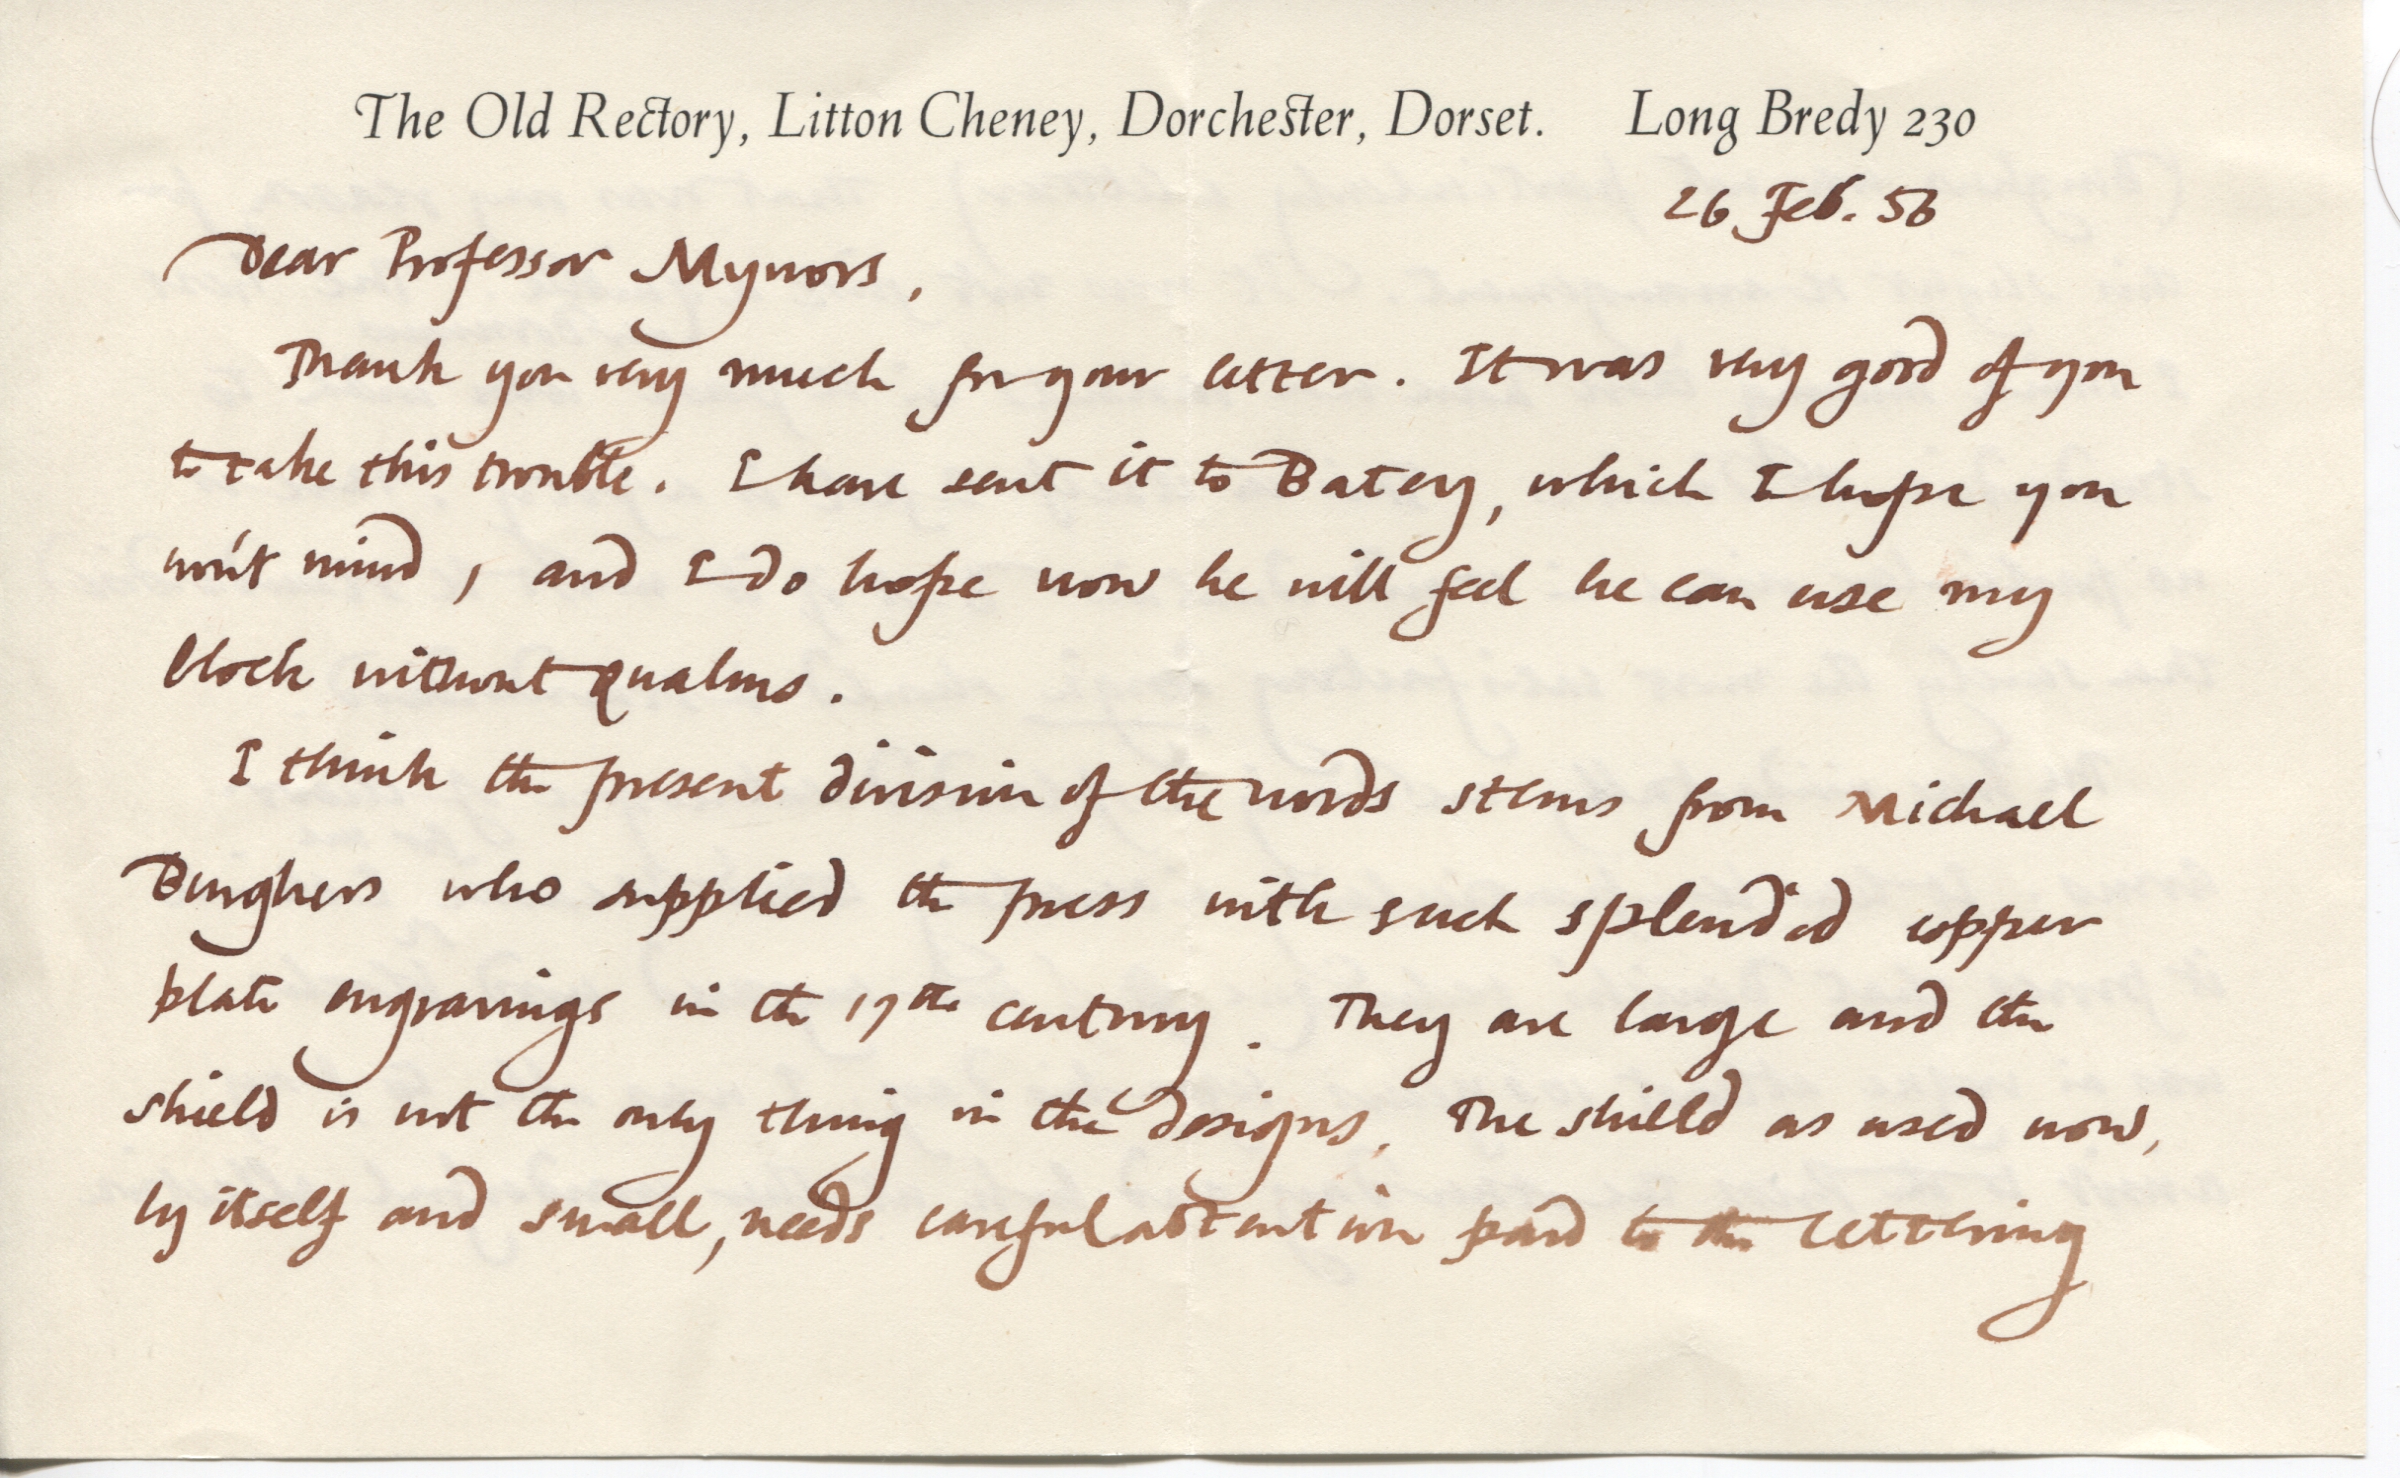 The Old Rectory, Litton Cheney, Dorchester, Dorset. Long Bredy 230
26 Feb. 56
Dear Professor Mynors,
Thank you very much for your letter. It was very good of you
to take this trouble. I have sent it to Batey, which I hope you
won't mind, and I do hope now he will feel he can use my
block without qualms.
I think the present division of the words stems from Michael
Burghers who supplied the press with such splendid copper
plate engravings in the 17th century. They are large and the
shield is not the only thing in the designs. The shield as used now,
by itself and small, needs careful attention paid to the lettering